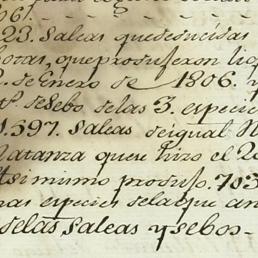 06.
23. Saleas que deducidas
que produjeron liq
de Enero de 1806. y
de Sebo de las 3. especie
1.597. Saleas de igual N
Matanza que se hizo el 20
simismo produjo. 703
mas especies de la que an
de las Saleas y sebos.